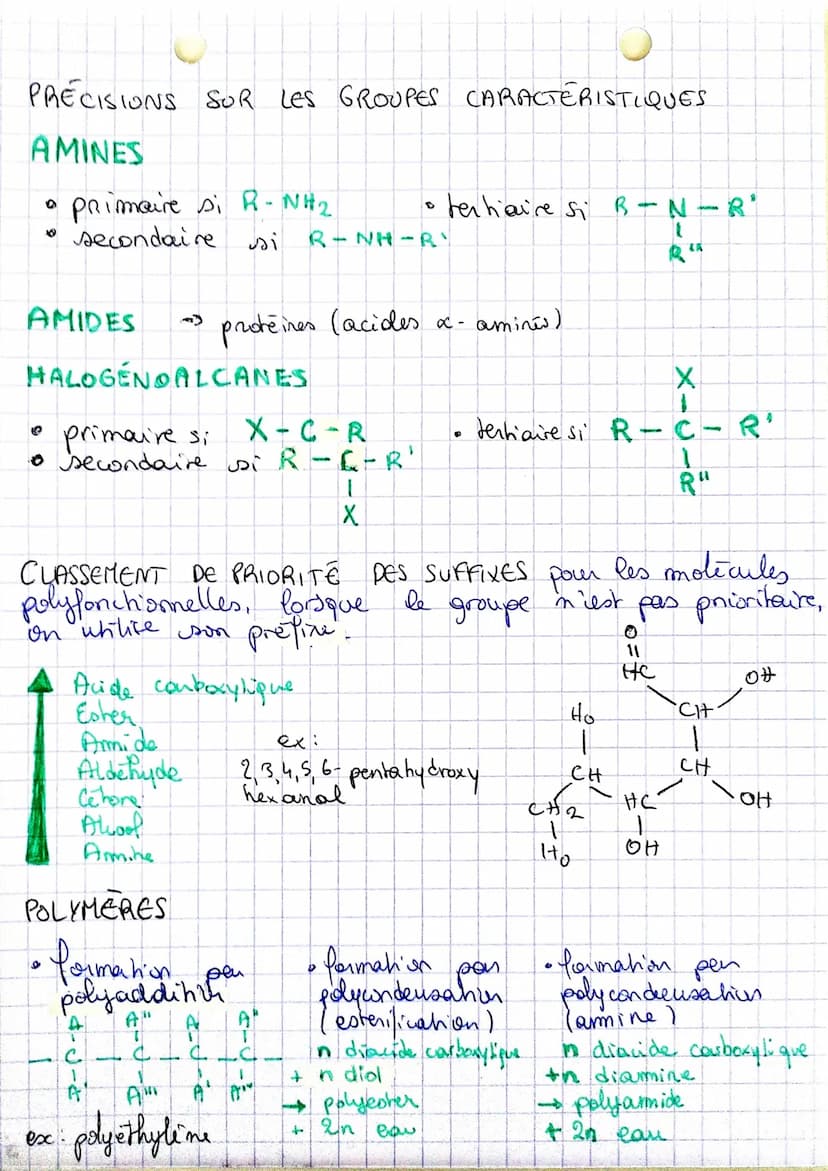 PRÉCISIONS SUR LES GROUPES CARACTÉRISTIQUES
AMINES
• primaire si R-NH2
• secondaire si R-NH-R'
• tertiaire si R-N-R'
R"
AMIDES → protéines (acides α-aminés)
HALOGÉNOALCANES
• primaire si X-C-R
• secondaire si R-C-R'
X
X
• tertiaire si R-C-R'
R"
CLASSEMENT DE PRIORITÉ DES SUFFIXES pour les molécules
polyfonctionnelles, lorsque le groupe n'est pas prioritaire,
on utilise son préfixe.
Acide carboxylique
Ester
Amide
Aldéhyde
Cétone
Alcool
Amine
ex:
2,3,4,5,6-pentahydroxy
hexanal
O
HC
OH
HO
CH
CH
CH
CH2
HC
OH
HO
OH
POLYMÈRES
• formation par
polyaddition
A A" A A"
-C-C-C-C-
A' A''' A' A'''
ex: polyéthylène
• formation par
polycondensation
(esterification)
n diacide carboxylique
+ n diol
→ polyester
+ 2n eau
• formation par
polycondensation
(amine)
n diacide carboxylique
+n diamine
→ polyamide
+ 2n eau